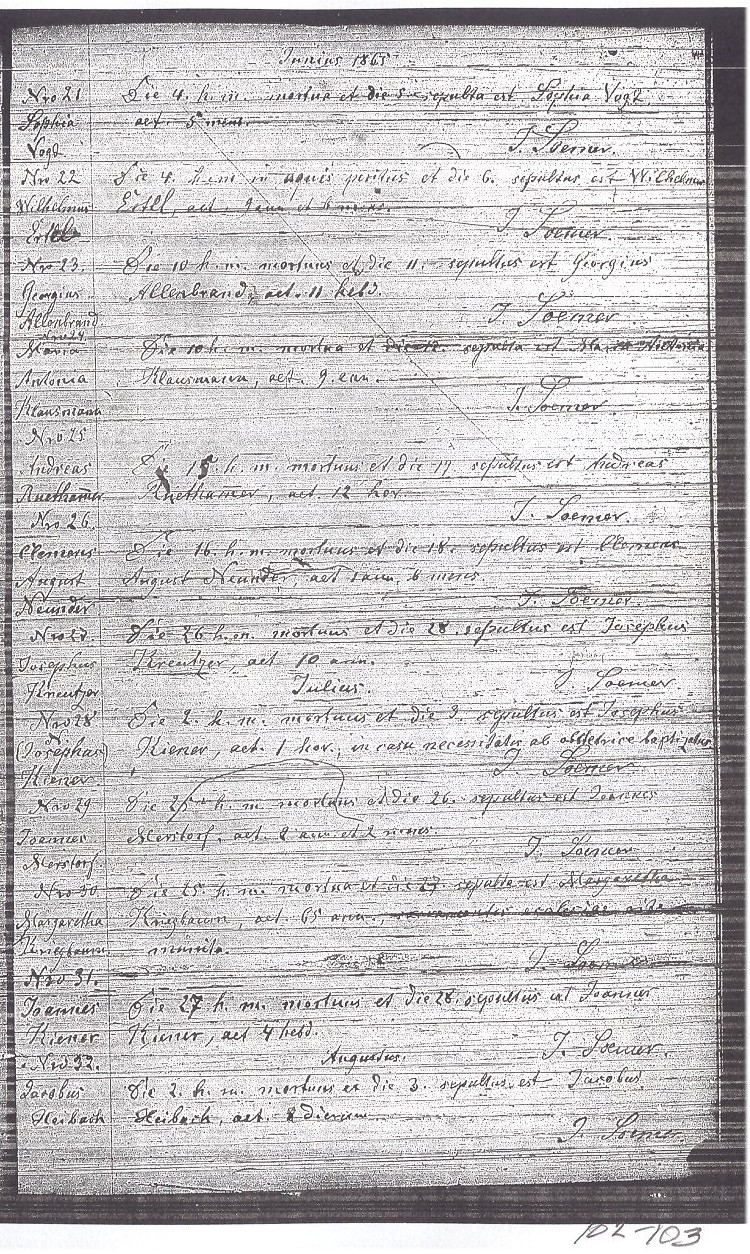 Junius 1865
Nro 21 Die 4. h. m. mortua et die 5. sepulta est Sophia Vogt
Sophia aet. 5 mens.
Vogd J. Soemer.
Nro 22 Die 4. h. m. in aquis peritus et die 6. sepultus est Wilhelmus
Wilhelmus Ertel, aet. 9 ann et 6 mens.
Ertel J. Soemer.
Nro 23. Die 10 h. m. mortuus et die 11. sepultus est Georgius
Georgius Allenbrand, aet. 11 hebd.
Allenbrand J. Soemer
Nro 24.
Maria Die 10 h. m. mortua et die 12. sepulta est Maria
Antonia Klausmann, aet. 9 ann.
Klausmann J. Soemer
Nro 25
Andreas Die 15. h. m. mortuus et die 17. sepultus est Andreas
Ruethamer Ruethamer, aet. 12 hor
Nro 26. J. Soemer.
Clemens Die 16. h. m. mortuus et die 18. sepultus est Clemens
August August Neunder, aet 1 ann. 6 mens
Neunder J. Soemer.
Nro 27. Die 26 h. m. mortuus et die 28. sepultus est Josephus
Josephus Kreutzer, aet 10 ann.
Kreutzer Julius. J. Soemer.
Nro 28 Die 2. h. m. mortuus et die 3. sepultus est Josephus
(Josephus) Kiener, aet. 1 hor., in casu necessitatis ab obstetrice baptizatus
Kiener J. Soemer
Nro 29 Die 25 h. m. mortuus et die 26. sepultus est Joannes
Joannes Merstorf. aet. 8 ann. et 2 mens.
Merstorf. J. Soemer
Nro 30 Die 25. h. m. mortua et die 27. sepulta est Margaretha
Margaretha Kriegbaum, aet. 65 ann.
Kriegbaum munita.
Nro 31. J. Soemer
Joannes Die 27 h. m. mortuus et die 28. sepultus est Joannes
Kiener Kiener, aet 4 hebd.
Nro 32. Augustus. J. Soemer.
Jacobus Die 2. h. m. mortuus et die 3. sepultus est Jacobus
Heibach Heibach, aet. 8 dierum
J. Soemer
102-103